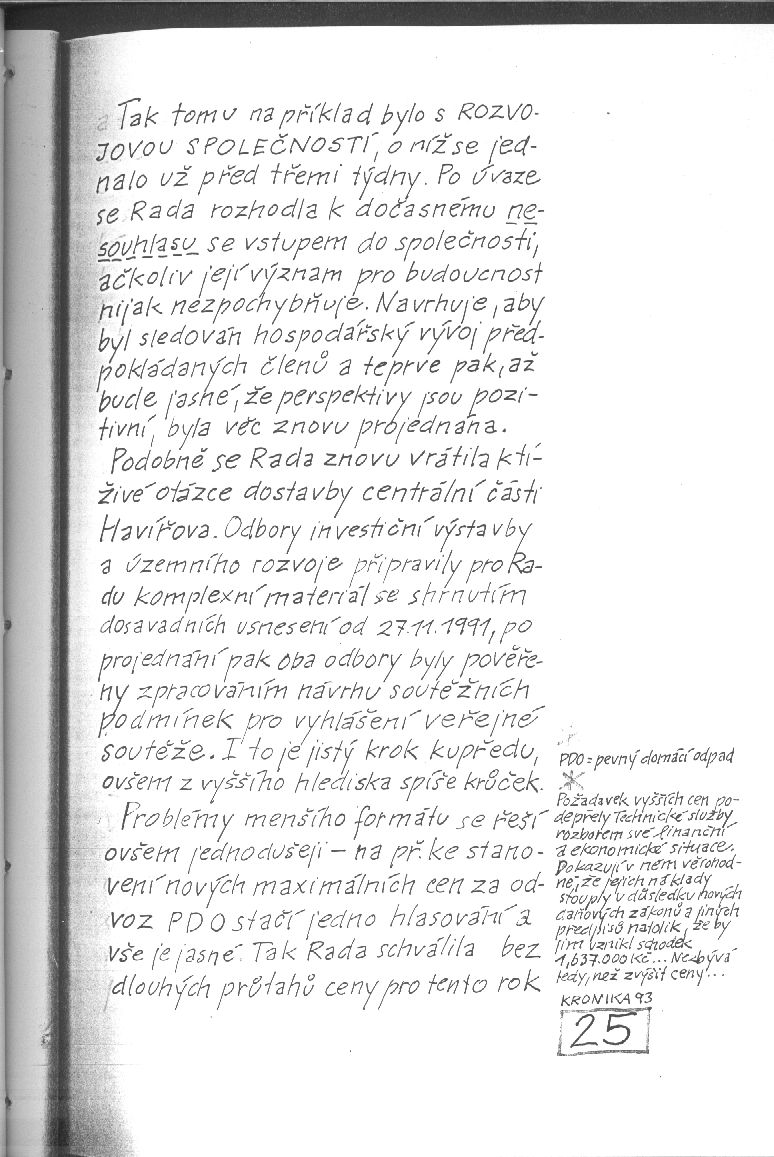 Tak tomu například bylo s ROZVO-
JOVOU SPOLEČNOSTÍ, o níž se jed-
nalo už před třemi týdny. Po úvaze
se Rada rozhodla k dočasnému ne-
souhlasu se vstupem do společnosti,
ačkoliv její význam pro budoucnost
nijak nezpochybňuje. Navrhuje, aby
byl sledován hospodářský vývoj před-
pokládaných členů a teprve pak, až
bude jasné, že perspektivy jsou pozi-
tivní, byla věc znovu projednána.
Podobně se Rada znovu vrátila k tí-
živé otázce dostavby centrální části
Havířova. Odbory investiční výstavby
a územního rozvoje připravily pro Ra-
du komplexní materiál se shrnutím
dosavadních usnesení od 27.11.1991, po
projednání pak oba odbory byly pověře-
ny zpracováním návrhu soutěžních
podmínek pro vyhlášení veřejné
soutěže. I to je jistý krok kupředu,
ovšem z vyššího hlediska spíše krůček.
Problémy menšího formátu se řeší
ovšem jednodušeji – na př. ke stano-
vení nových maximálních cen za od-
voz PDO stačí jedno hlasování a
vše je jasné. Tak Rada schválila bez
dlouhých průtahů ceny pro tento rok
PDO = pevný domácí odpad
*
Požadavek vyšších cen po-
depřely Technické služby
rozborem své finanční
a ekonomické situace.
Dokazují v něm věrohod-
ně, že jejich náklady
stouply v důsledku nových
daňových zákonů a jiných
předpisů natolik, že by
jim vznikl schodek
1,637.000 Kč... Nezbývá
tedy, než zvýšit ceny...
KRONIKA 93
25